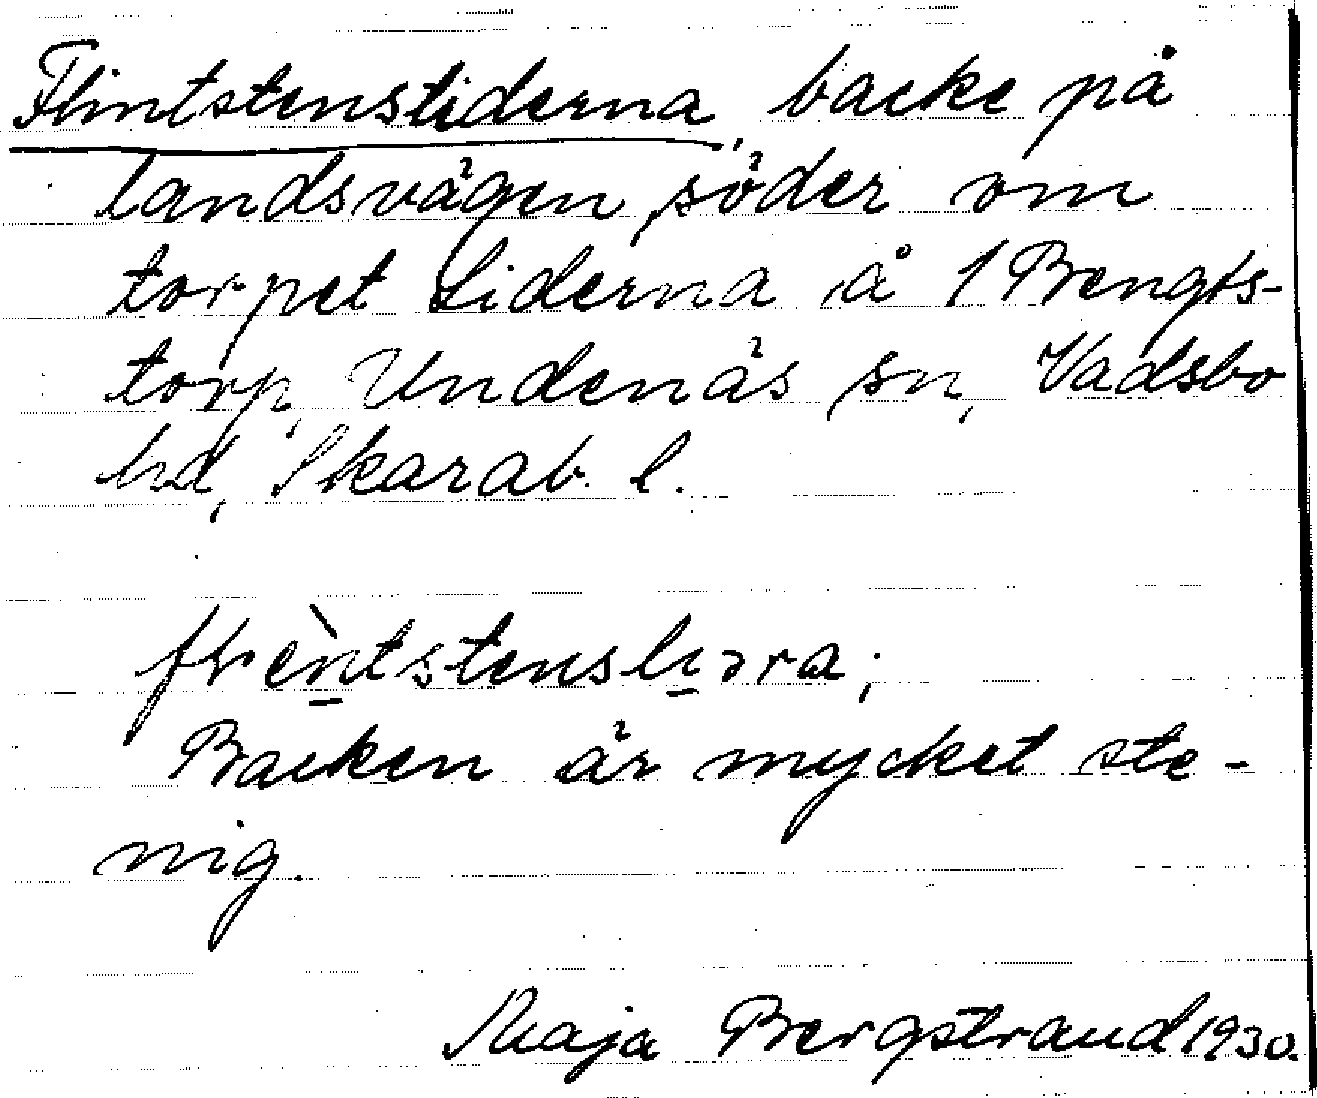 Flintstensliderna, backe på
landsvägen, söder om
torpet Liderna å 1 Bengts-
torp, Undenäs sn, Vadsbo
hd, Skarab. l.
Backen är mycket ste-
nig.
Maja Bergstrand 1930.